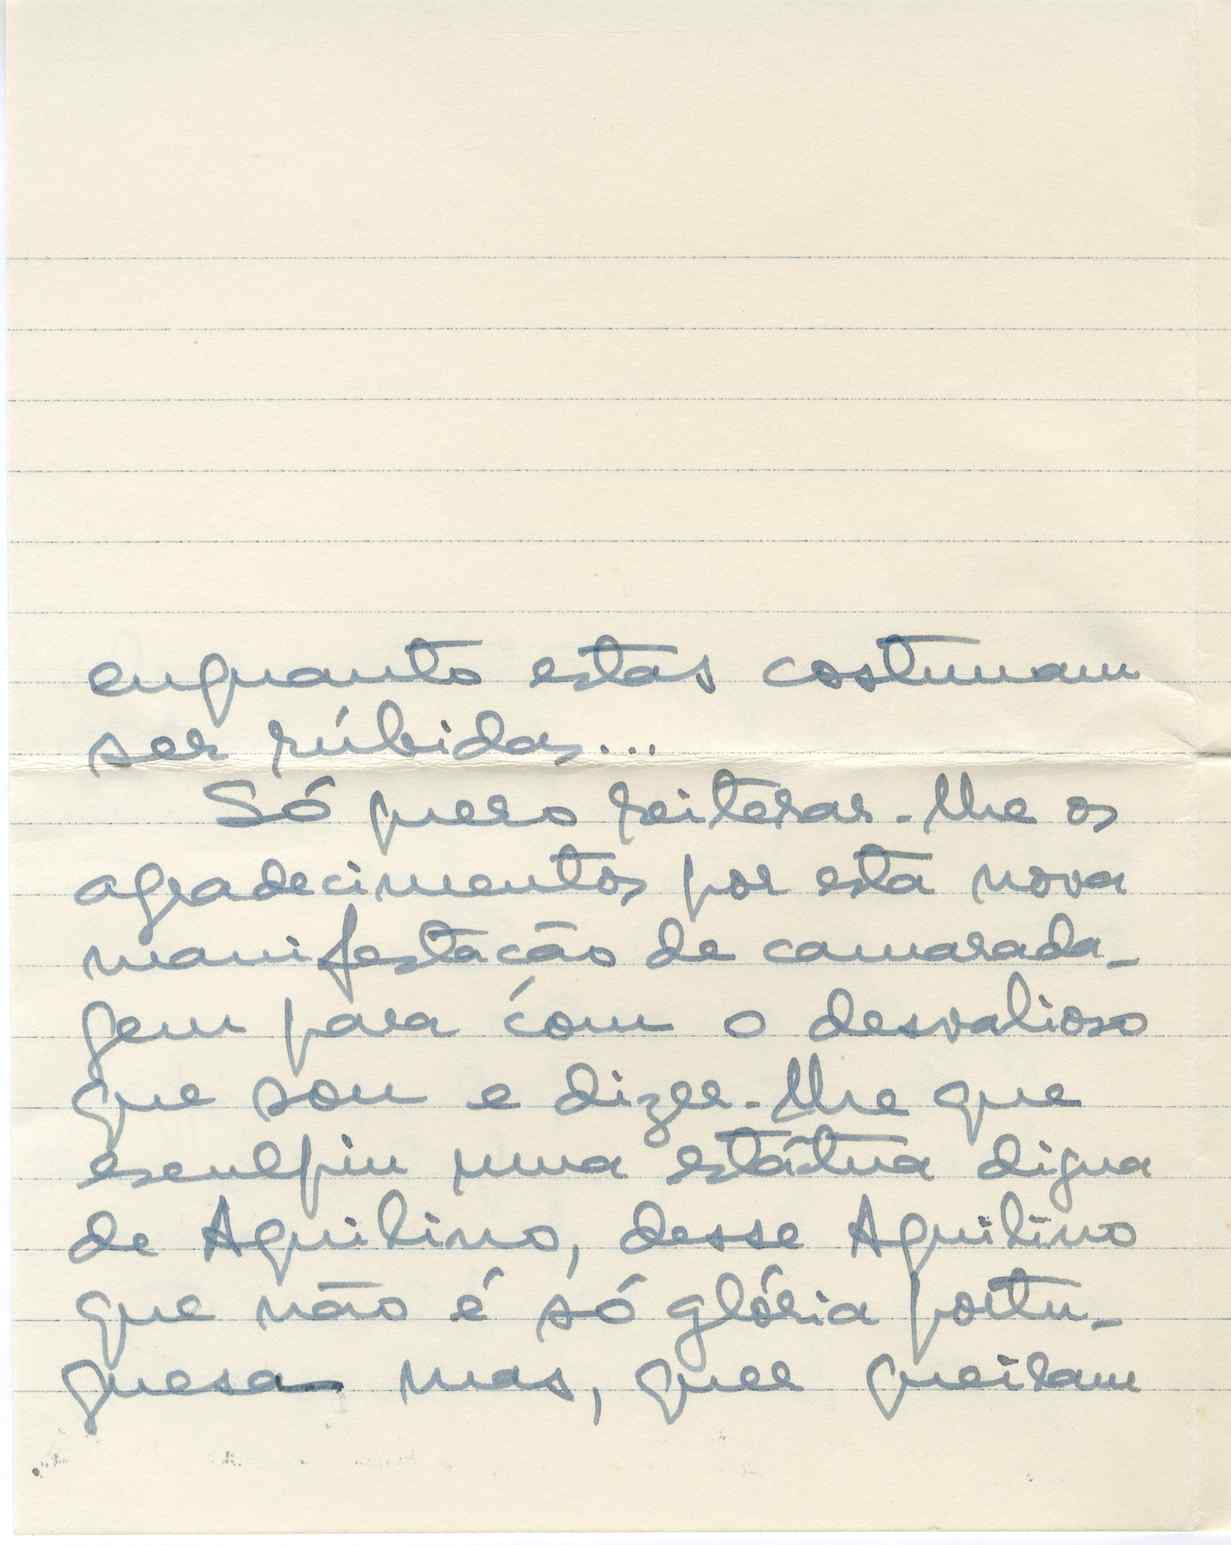 enquanto estas costumam
ser rúbidas...
Só quero reiterar-lhe os
agradecimentos por esta nova
manifestação de camarada-
gem para com o desvalioso
que sou e dizer-lhe que
esculpiu uma estátua digna
de Aquilino, desse Aquilino
que não é só glória portu-
guesa mas, quer queiram